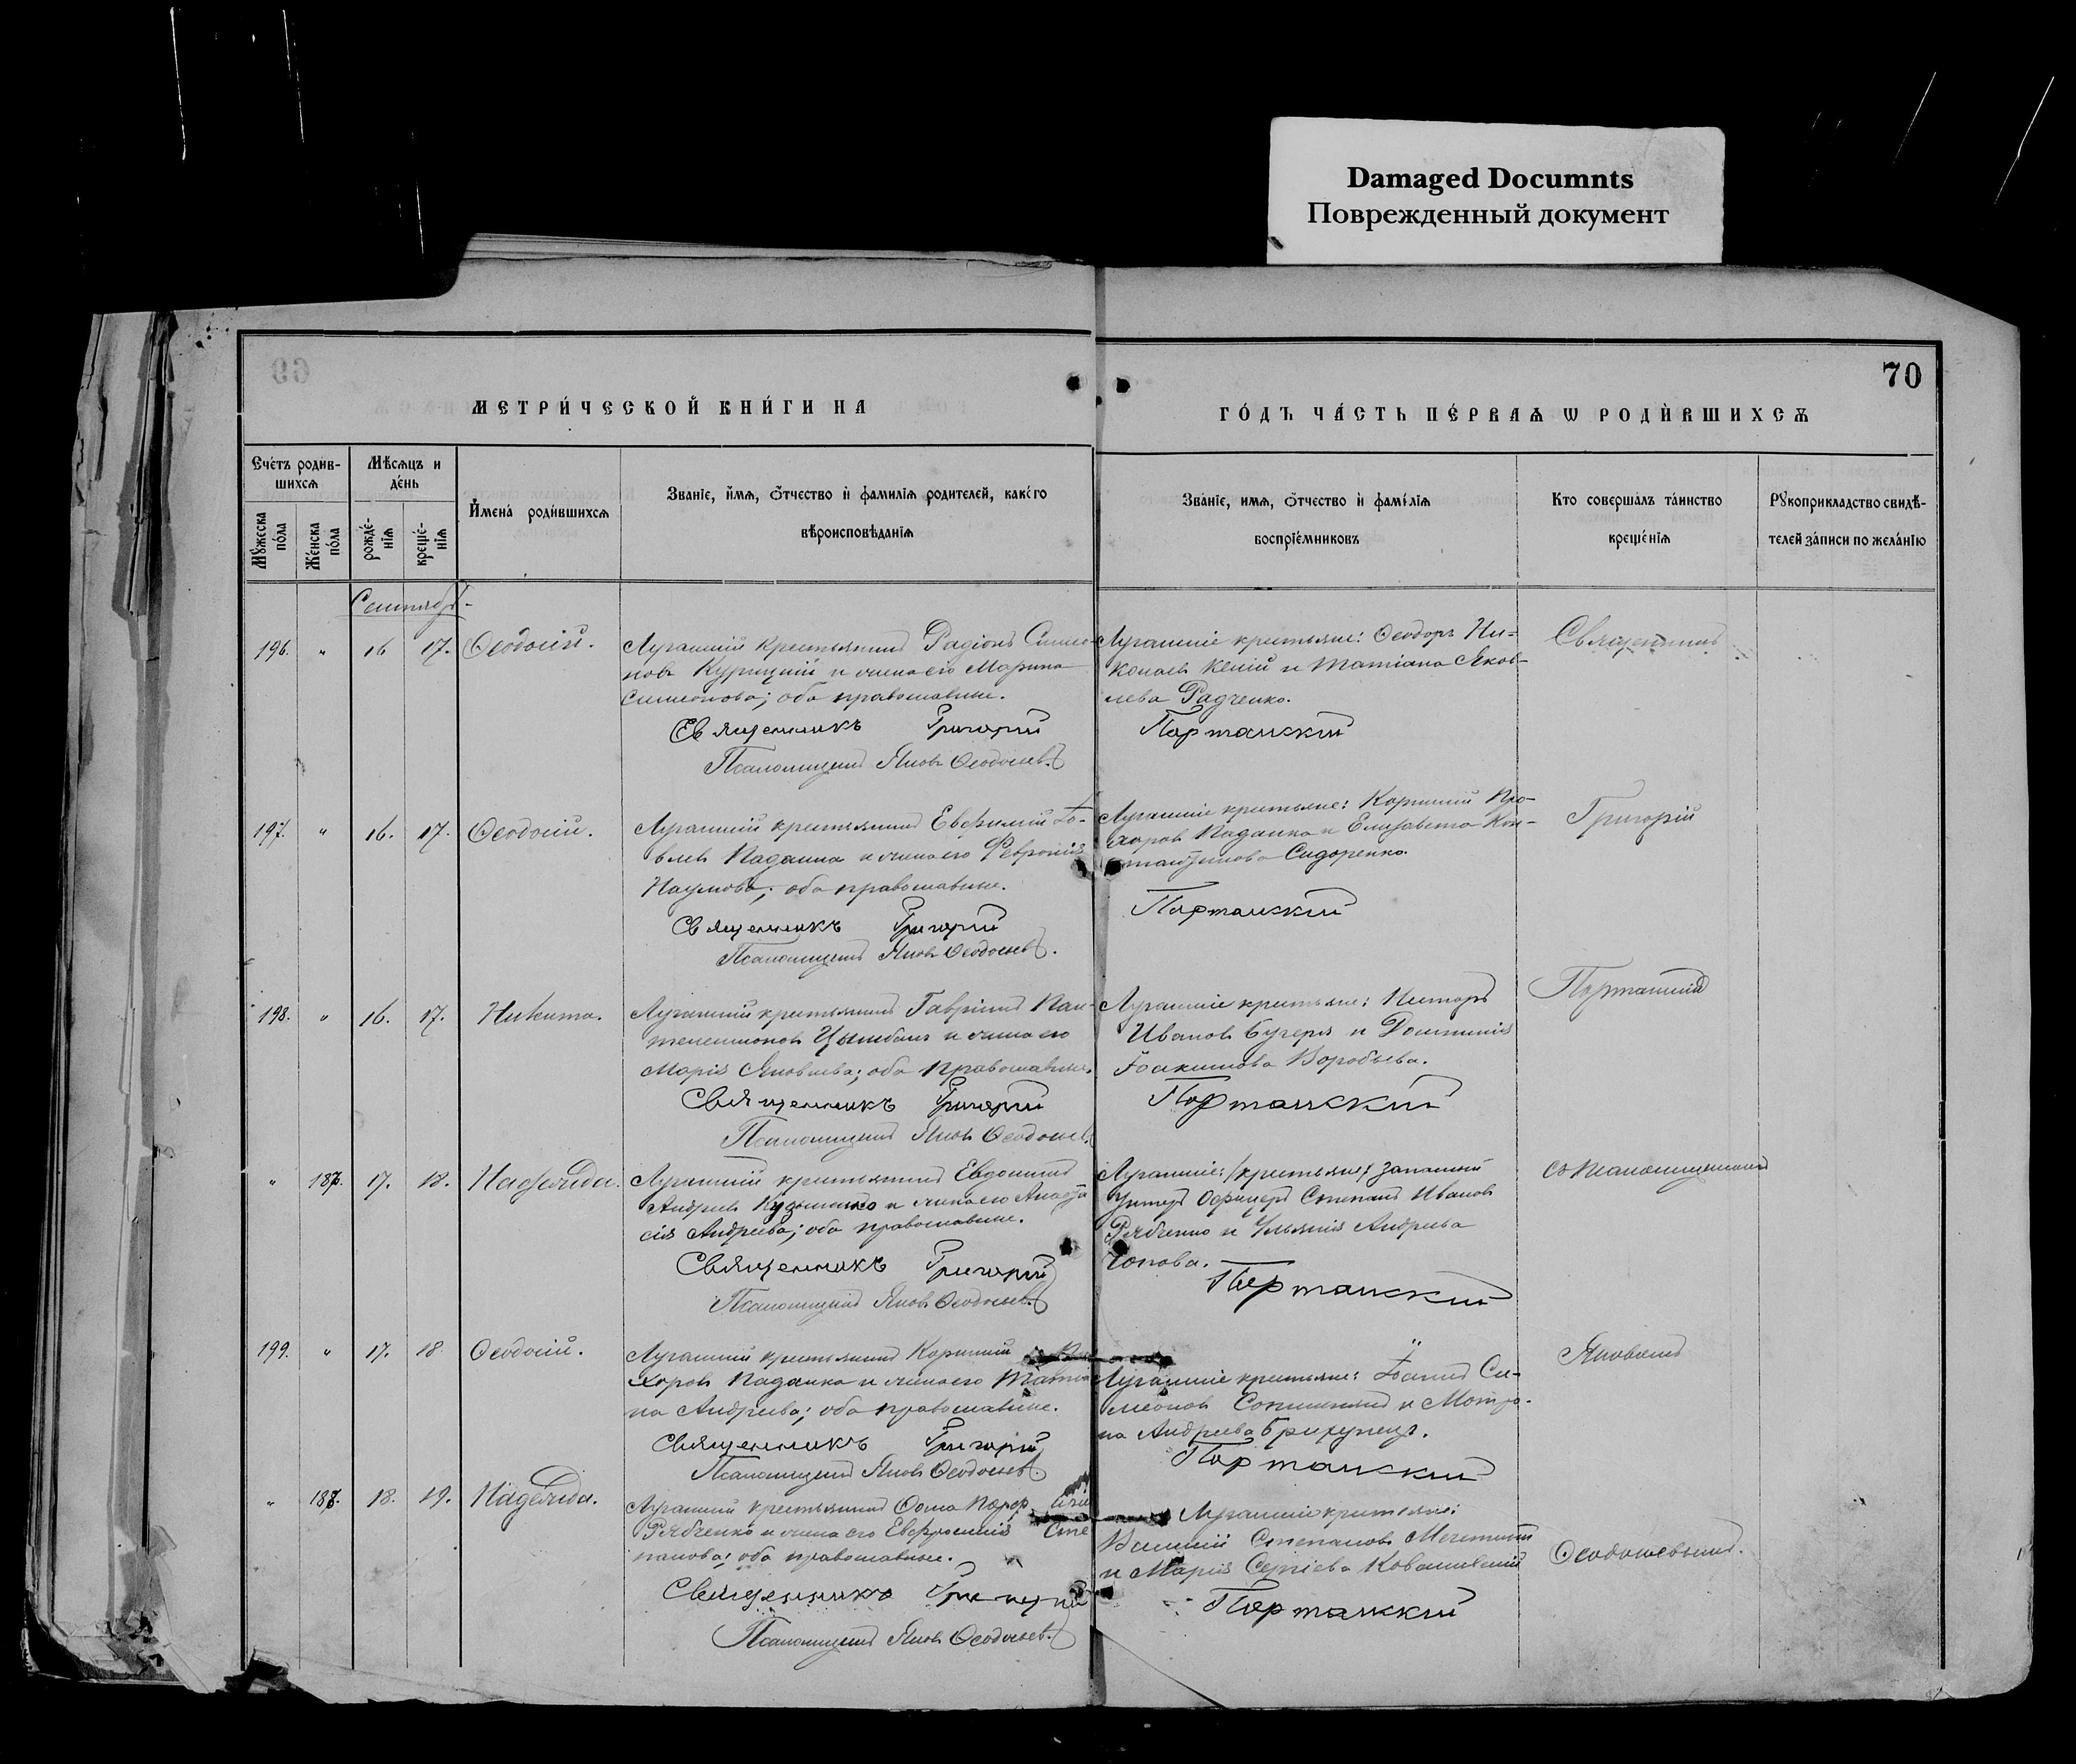 Damaged Documnts
Поврежденный документ
70
МЕТРИ́ЧЕСКОЙ КНИ́ГИ НА
ГО́ДЪ ЧА́СТЬ ПЕ́РВАѦ Ѡ РОДИ́ВШИХСѦ
Счетъ роди́в-
шихсѧ
Мѣ́сѧцъ и
де́нь
Мꙋжеска по́ла
Же́нска по́ла
рожде́-
нїѧ
креще́-
нїѧ
И҆мена̀ роди́вшихсѧ
Зва́нїе, и҆́мѧ, ѻ҆́тчество и҆ фами́лїѧ роди́телей, како́го
вѣроисповѣ́данїѧ
Зва́нїе, имѧ, ѻ҆́тчество и҆ фамі́лїѧ
воспрїе́мниковъ
Кто соверша́лъ та́инство
креще́нїѧ
Рꙋкоприкладство свидѣ́-
телей за́писи по жела́нїю
Сентябр.
196. " 16 17. Ѳеодосій.
Лугашній крестьянинъ Радіонъ Симео-
новъ Курицкій и жена его Марина
Симеонова; оба православные.
Священникъ Григорій
Псаломщикъ Яковъ Ѳеодосьев.
Лугашніе крестьяне: Ѳеодоръ Ни-
колаев и Татіана Яков-
лева Радченко.
Порташскій
Священникъ
197. " 16. 17. Ѳеодосій.
Лугашній крестьянинъ Евфимій Іо-
влев Падалка и жена его Февронія
Наумова; оба православные.
Священникъ Григорій
Псаломщикъ Яковъ Ѳеодосьев.
Лугашніе крестьяне: Корнилій Про-
хоров Падалка и Елизавета Кон-
стантинова Сидоренко.
Порташскій
Григорій
198. " 16. 17. Никита.
Лугашній крестьянинъ Гавріилъ Пан-
телеимонов Цымбалъ и жена его
Марія Яковлева; оба православные.
Священникъ Григорій
Псаломщикъ Яковъ Ѳеодосьев.
Лугашніе крестьяне: Несторъ
Иванов и Домникія
Іоакимова Воробьева.
Порташскій
Порташскій
" 187. 17. 18. Надежда.
Лугашній крестьянинъ Евдокимъ
Андреев Кузьменко и жена его Анаста
сія Андреева; оба православные.
Священникъ Григорій
Псаломщикъ Яковъ Ѳеодосьев.
Лугашніе: /крестьяне/ запасный
Унтеръ Офицеръ Степанъ Иванов
Рябченко и Ульянія Андреева
Порташскій
съ Псаломщикомъ
199. " 17. 18 Ѳеодосій.
Лугашній крестьянинъ Корнилій
хоров Падалка и жена его Татіа
на Андреева; оба православные.
Священникъ Григорій
Псаломщикъ Яковъ Ѳеодосьев.
Лугашніе крестьяне: Іоаннъ Си-
меонов и Матро-
на Андреева
Порташскій
Яковомъ
" 188. 18. 19. Надежда.
Лугашній крестьянинъ Ѳома
Рябченко и жена его Евфросинія Сте
панова; оба православные.
Священникъ Григорій
Псаломщикъ Яковъ Ѳеодосьев.
Лугашніе крестьяне:
Василій Степанов
и Марія Сергіева
Порташскій
Ѳеодосьевымъ.